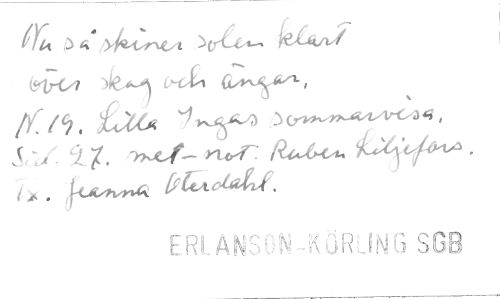 Nu så skiner solen klart
över skog och ängar.
N. 19. Lilla Ingas sommarvisa.
Sid. 27. mel-not. Ruben Liljefors.
Tx. Jeanna Oterdahl.
ERLANSON-KÖRLING SGB